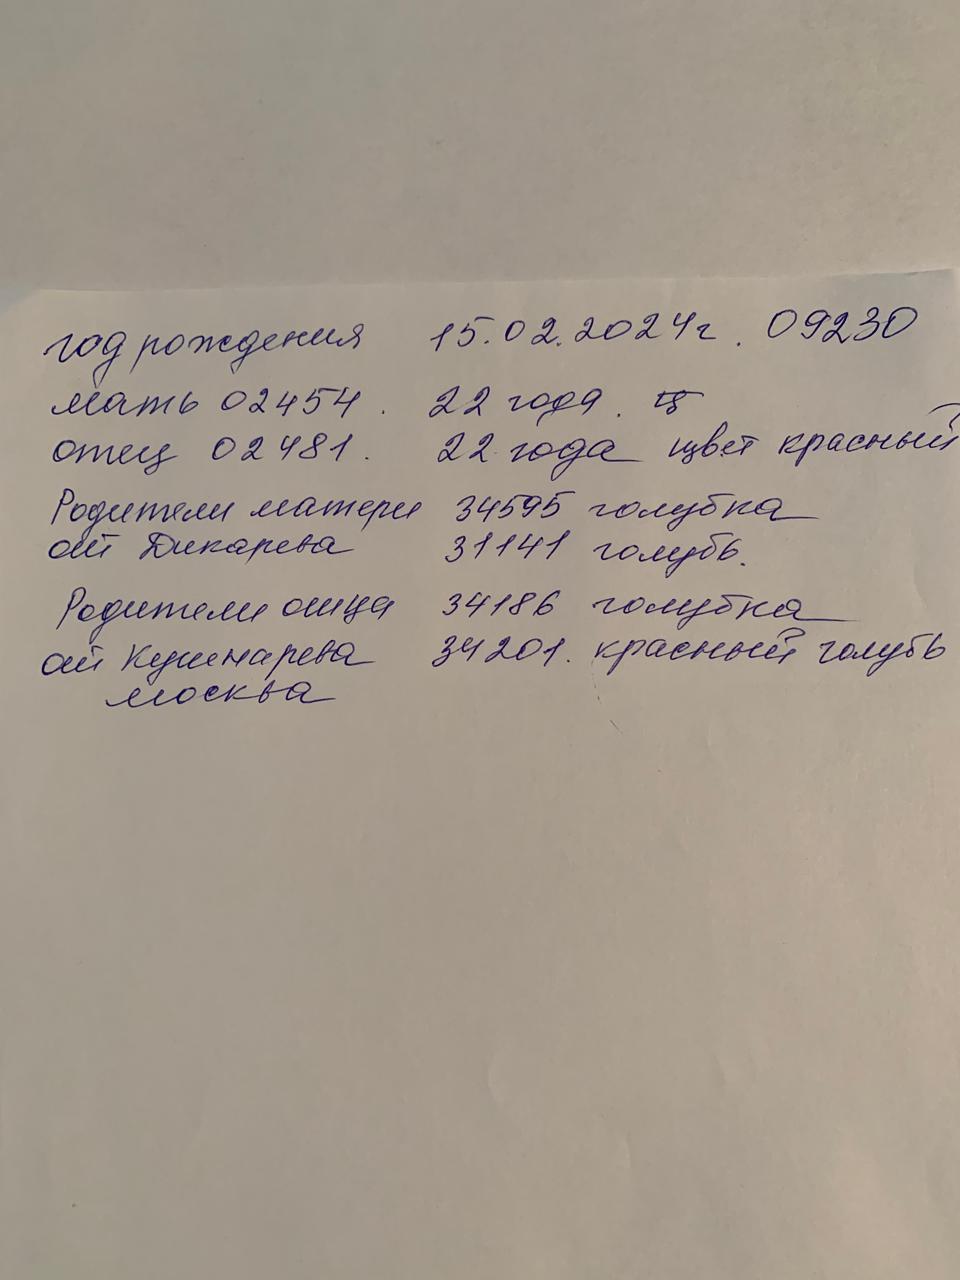 год рождения 15.02.2024г. 09230
мать 02454. 22 года. ц
отец 02481. 22 года цвет красный
Родители матери 34595 голубка
от Дикарева 31141 голубь.
Родители отца 34186 голубка
от Кушнарева 34201. красный голубь
Москва